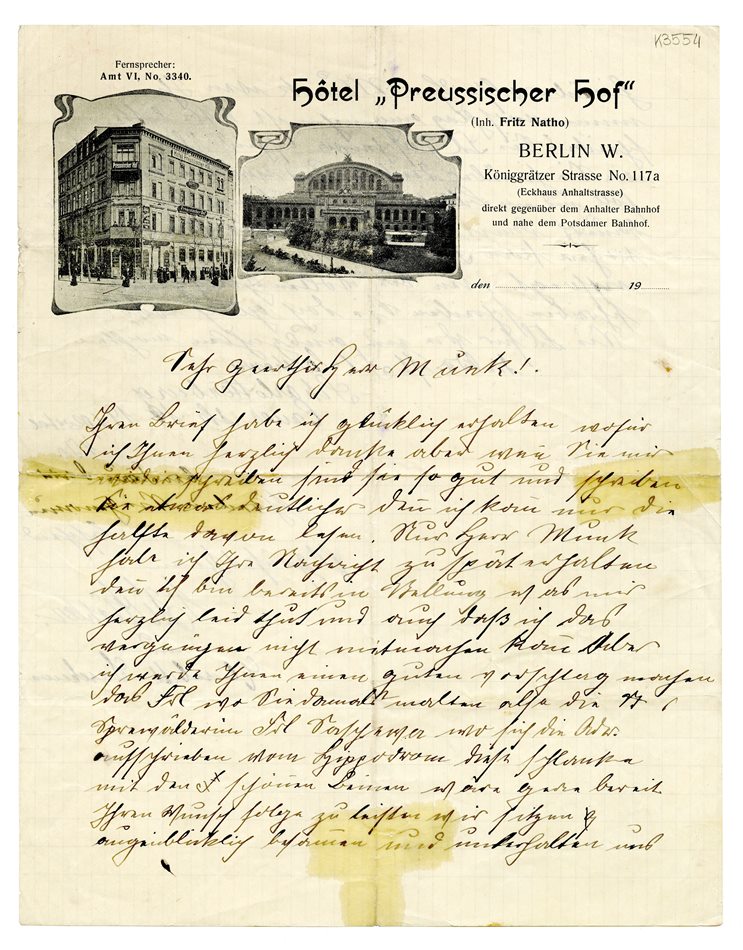 K3554
Fernsprecher:
Amt VI, No. 3340.
Hôtel „Preussischer Hof“
(Inh. Fritz Natho)
BERLIN W.
Königgrätzer Strasse No. 117a
(Eckhaus Anhaltstrasse)
direkt gegenüber dem Anhalter Bahnhof
und nahe dem Potsdamer Bahnhof.
den 19
Sehr geerther Herr Munk!.
Ihren Brief habe ich glücklich erhalten wofür
ich Ihnen herzlich danke aber wen Sie mir
wieder schreiben sind sie so gut und schreiben
Sie etwas deutlicher den ich kan nur die
hälfte davon lesen. Nur Herr Munk
hab ich Ihre Nachricht zu spät erhalten
den ich bin bereits in Stellung was mir
herzlich leid thut und auch daß ich das
vergnügen nicht mitmachen kan Aber
ich werde Ihnen einen guten vorschlag machen
das Frl wo Sie damals malten also die
Spreewälderin Frl Saschewa wo sich die Adr.
aufschrieben vom Hippodrom diese schlanke
mit den schönen Beinen wäre gerne bereit
Ihren Wunsch folge zu leisten wir sitzen
augenblicklich besamen und unterhalten uns